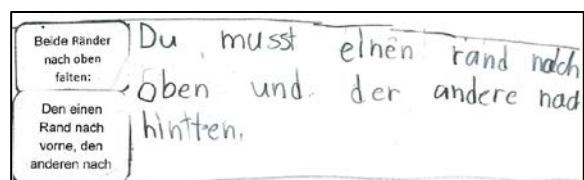 Beide Ränder
nach oben
falten:
Den einen
Rand nach
vorne, den
anderen nach
Du musst einen rand nach
oben und der andere nad
hintten.